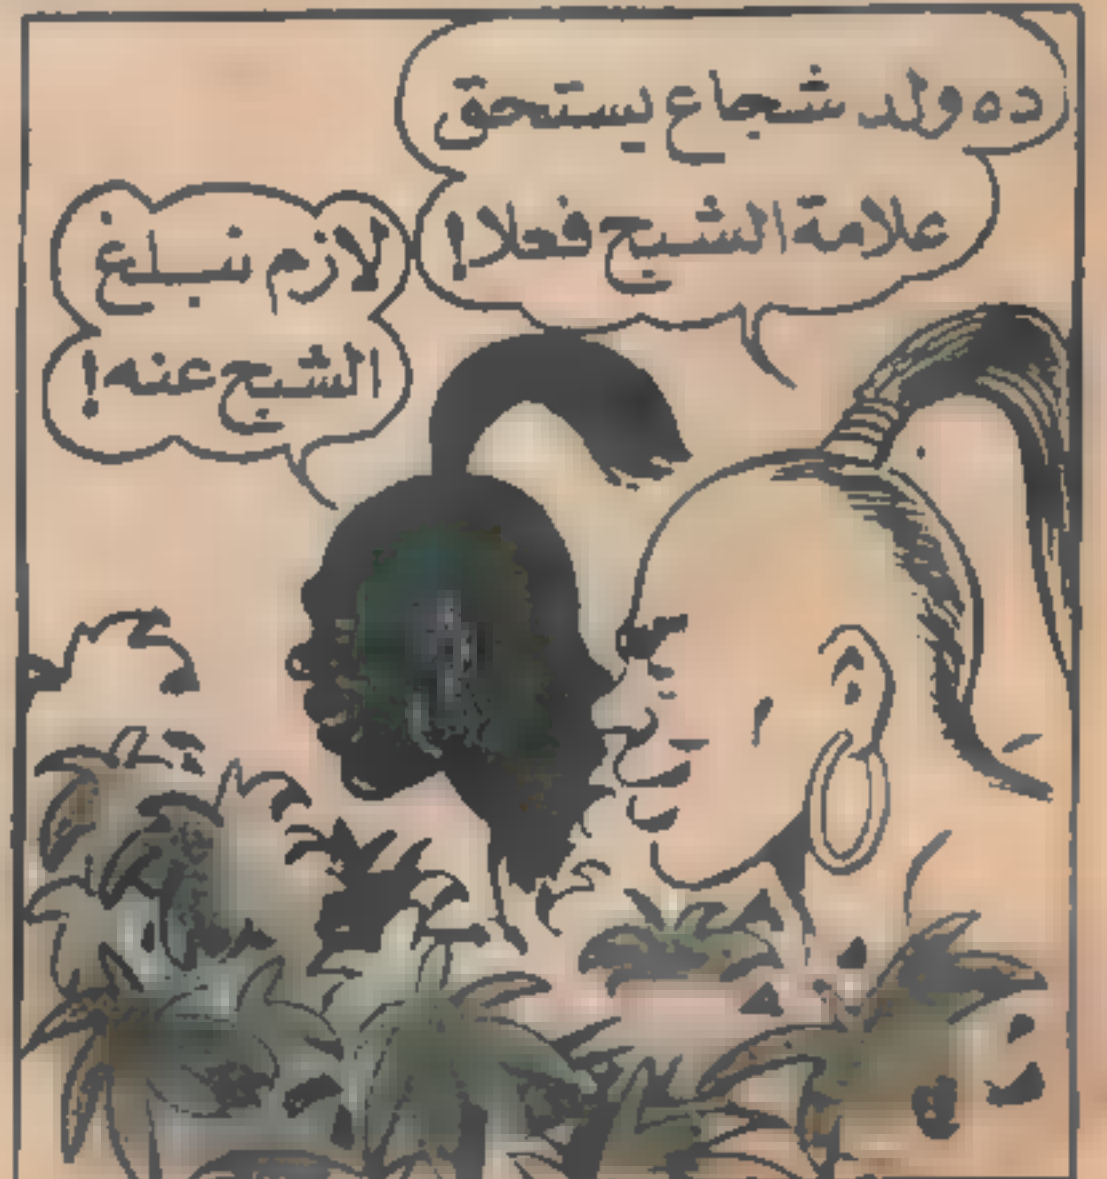 ده ولد شجاع يستحق
علامة الشبح فعلا!
لازم نبلغ
الشبح عنه!